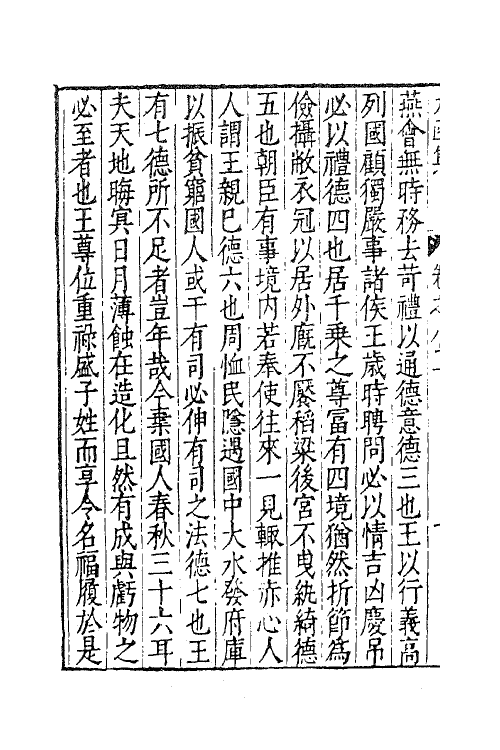 燕會無時務去苛禮以通德意德三也王以行義高
列國顧獨嚴事諸侯王歲時聘問必以情吉凶慶吊
必以禮德四也居千乗之尊冨有四境猶然折節為
儉攝敝衣冠以居外廐不饜稻粱後宮不曳紈綺德
五也朝臣有事境内若奉使往來一見輙推赤心人
人謂王親巳德六也周恤民隱遇國中大水發府庫
以振貧窮國人或干有司必伸有司之法德七也王
有七德所不足者豈年哉今棄國人春秋三十六耳
夫天地晦冥日月薄蝕在造化且然有成與虧物之
必至者也王尊位重祿盛子姓而享令名福履於是